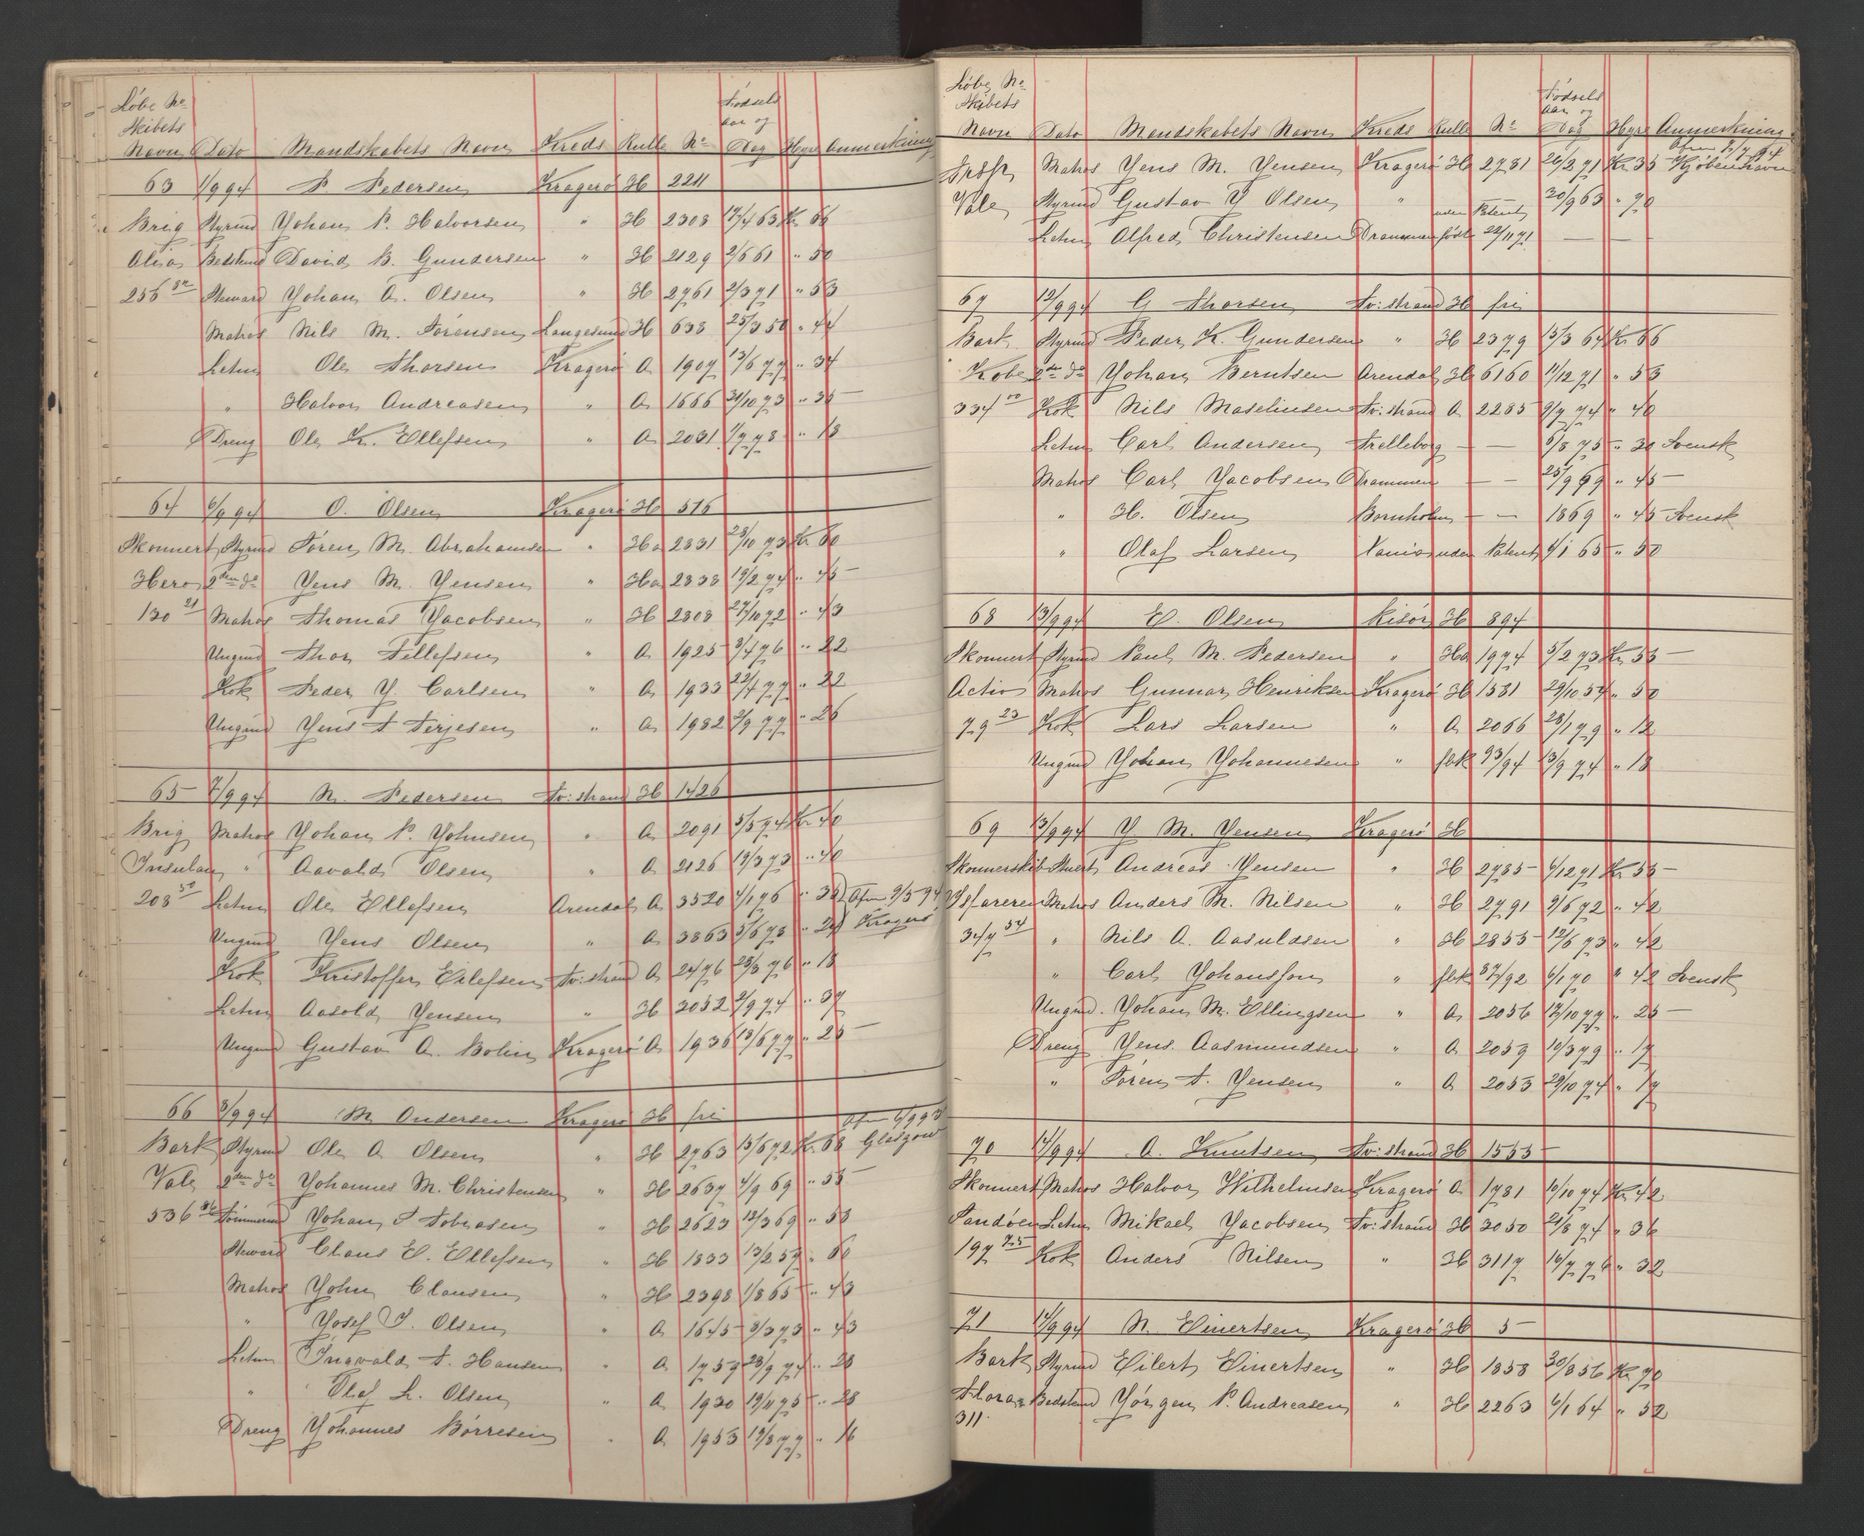 Løbe No
Skibets
Navn Dato Mandskabets Navn Kreds Rulle No Fødsels aar og Dag Hyre Anmerkning
63 1/9 94 P. Pedersen Kragerø H 2211
Brig Styrmd Johan P. Halvorsen " H 2308 17/4 63 Kr 66
Bedstmd David B. Gundersen " H 2129 2/6 61 " 50
256 Steward Johan A. Olsen " H 2761 2/3 71 " 53
Matros Nils M. Sørensen Langesund H 638 25/3 50 " 44
Letm Ole Thorsen Kragerø A 1907 13/6 77 " 34
" Halvor Andreasen " A 1666 31/10 73 " 35
Dreng Ole K. Ellefsen " A 2031 1/7 78 " 18
64 6/9 94 O. Olsen Kragerø H 516
Skonnert Styrmd Søren M. Abrahamsen " Ha 2831 28/10 73 Kr 60
Hero 2den do Jens M. Jensen " Ha 2838 19/2 74 " 45
130 21 Matros Thomas Jacobsen " H 2808 27/10 72 " 43
Ungmd Thor Tellefsen " A 1925 3/4 76 " 22
Kok Peder J. Carlsen " A 1933 22/1 77 " 22
Ungmd Jens T. Terjesen " A 1982 2/9 77 " 26
65 7/9 94 N. Pedersen Tv:strand H 1426
Brig Matros Johan P. Johnsen " A 2091 5/5 74 Kr 40
Insulan " Aavald Olsen " A 2126 19/3 73 " 40
208 50 Letm Ole Ellefsen Arendal A 3520 4/1 76 " 35 Afm 9/5 94
Ungmd Jens Olsen " A 3863 5/6 78 " 24 Kragerø
Kok Kristoffer Eilefsen Tv:strand A 2476 23/3 76 " 18
Letm Aasold Jensen " H 3052 2/9 74 " 37
Ungmd Gustav A. Bolin Kragerø A 1936 13/6 77 " 25
66 8/9 94 M Andersen Kragerø H fri
Bark Styrmd Ole A Olsen " H 2763 13/6 72 Kr 68 Glasgow
Vale 2den do Johannes M. Christensen " H 2637 4/9 69 " 55
536 Tømmermd Johan T Tobiasen " H 2623 12/3 69 " 58
Steward Claus E. Ellefsen " H 1833 13/2 57 " 60
Matros John Clausen " H 2398 1/8 65 " 43
" Josef J. Olsen " A 1645 3/3 73 " 43
Letm Ingvald T. Hansen " A 1757 28/9 74 " 28
" Olaf L. Olsen " A 1930 19/11 75 " 28
Dreng Johannes Børresen " A 1953 19/8 77 " 16
Løbe No
Skibets
Navn Dato Mandskabets Navn Kreds Rulle No Fødsels aar og Dag Hyre Anmerkning
Matros Jens M. Jensen Kragerø H 2781 26/2 71 Kr 35 Kjøbenhavn
Vale Styrmd Gustav J Olsen " uden Patent 30/9 63 " 70
Letm Alfred Christensen Drammen født 22/11 71 — —
67 12/9 94 G Thorsen Tv:strand H fri
Bark Styrmd Peder K. Gundersen " H 2379 15/3 64 Kr 66
Kobe 2den do Johan Berntsen Arendal H 6160 11/12 71 " 53
334 00 Kok Nils Maselinsen Tv:strand A 2285 9/7 74 " 40
Letm Carl Andersen Trelleborg — — 5/8 75 " 30 Svensk
Matros Carl Jacobsen Drammen — — 25/9 69 " 45
" H. Olsen Bornholm — — 1869 " 45 Svensk
" Olaf Larsen Xania uden Patent 4/1 65 " 50
68 13/9 94 E. Olsen Risør H 894
Skonnert Styrmd Paul M. Pedersen " Ha 1974 5/2 73 Kr 55
Activ Matros Gunnar Henriksen Kragerø H 1581 29/10 54 " 50
79 23 Kok Lars Larsen " A 2066 28/1 79 " 12
Ungmd Johan Johannesen " fbk 93/94 13/9 74 " 18
69 13/9 94 J M. Jensen Kragerø H
Skonnerskib Stuert Andreas Jensen " H 2785 6/12 71 Kr 55
Ysfareren Matros Anders M. Nilsen " H 2791 2/6 72 " 42
347 54 " Nils A. Aasuldsen " H 2855 12/6 73 " 42
" Carl Johansson " fbk 37/92 6/1 70 " 42 Svensk
Ungmd Johan M. Ellingsen " A 2056 17/10 77 " 25
Dreng Jens Aasmundsen " A 2059 10/3 79 " 17
" Søren T. Jensen " A 2053 29/10 74 " 17
70 14/9 94 A. Knutsen Tv:strand H 1565
Skonnert Matros Halvor Wilhelmsen Kragerø A 1781 10/10 74 Kr 42
Sandøen Letm Mikael Jacobsen Tv:strand H 3050 21/8 74 " 36
197 75 Kok Anders Nilsen " H 3117 16/7 76 " 32
71 14/9 94 N. Einertsen Kragerø H 5
Bark Styrmd Eilert Einertsen " H 1858 30/8 56 Kr 70
Flora Bedstmd Jørgen P. Andreasen " H 2263 6/1 64 " 52
311